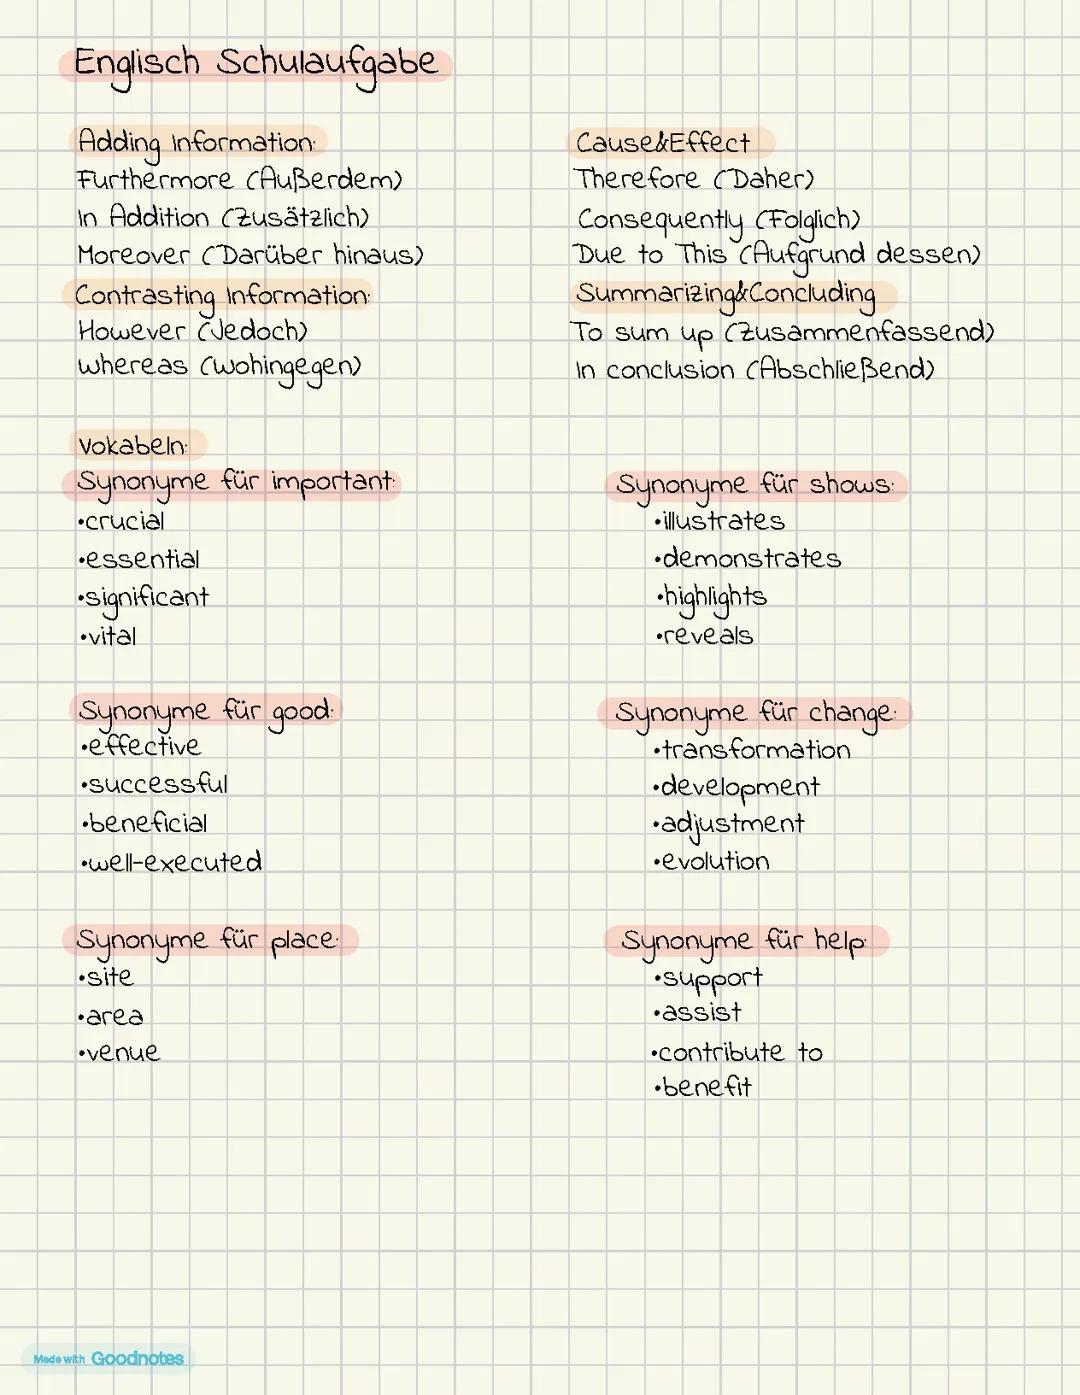 Englisch Schulaufgabe
Adding Information:
Furthermore (Außerdem)
In Addition (Zusätzlich)
Moreover (Darüber hinaus)
Contrasting Information:
However (Jedoch)
whereas (wohingegen)
Cause&Effect
Therefore (Daher)
Consequently (Folglich)
Due to This (Aufgrund dessen)
Summarizing&Concluding
To sum up (Zusammenfassend)
In conclusion (Abschließend)
Vokabeln:
Synonyme für important:
•crucial
•essential
•significant
•vital
Synonyme für shows:
•illustrates
•demonstrates
•highlights
•reveals
Synonyme für good:
•effective
•successful
•beneficial
•well-executed
Synonyme für change:
•transformation
•development
•adjustment
•evolution
Synonyme für place:
•site
•area
•venue
Synonyme für help:
•support
•assist
•contribute to
•benefit
Made with Goodnotes